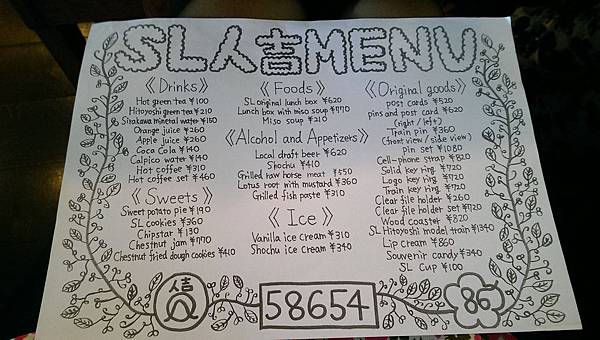 SL人吉MENU
《Drinks》
Hot green tea ¥100
Hitoyoshi green tea ¥210
Sirakawa mineral water ¥150
Orange juice ¥260
Apple juice ¥260
Coca Cola ¥140
Calpico water ¥140
Hot coffee ¥310
Hot coffee set ¥460
《Sweets》
Sweet potato pie ¥190
SL cookies ¥360
Chipstar ¥130
Chestnut jam ¥770
Chestnut fried dough cookies ¥410
《Foods》
SL original lunch box ¥620
Lunch box with miso soup ¥770
Miso soup ¥210
《Alcohol and Appetizers》
Local draft beer ¥620
Shochu ¥410
Grilled raw horse meat ¥550
Lotus root with mustard ¥360
Grilled fish paste ¥310
《Ice》
Vanilla ice cream ¥310
Shochu ice cream ¥340
《Original goods》
post cards ¥520
pins and post card ¥620
(right / left)
Train pin ¥360
(front view / side view)
pin set ¥1080
Cell-phone strap ¥820
Solid key ring ¥720
Logo key ring ¥720
Train key ring ¥720
Clear file holder ¥260
Clear file holder set ¥720
Wood coaster ¥820
SL Hitoyoshi model train ¥1340
Lip cream ¥860
Souvenir candy ¥340
SL Cup ¥100
人吉
58654
86